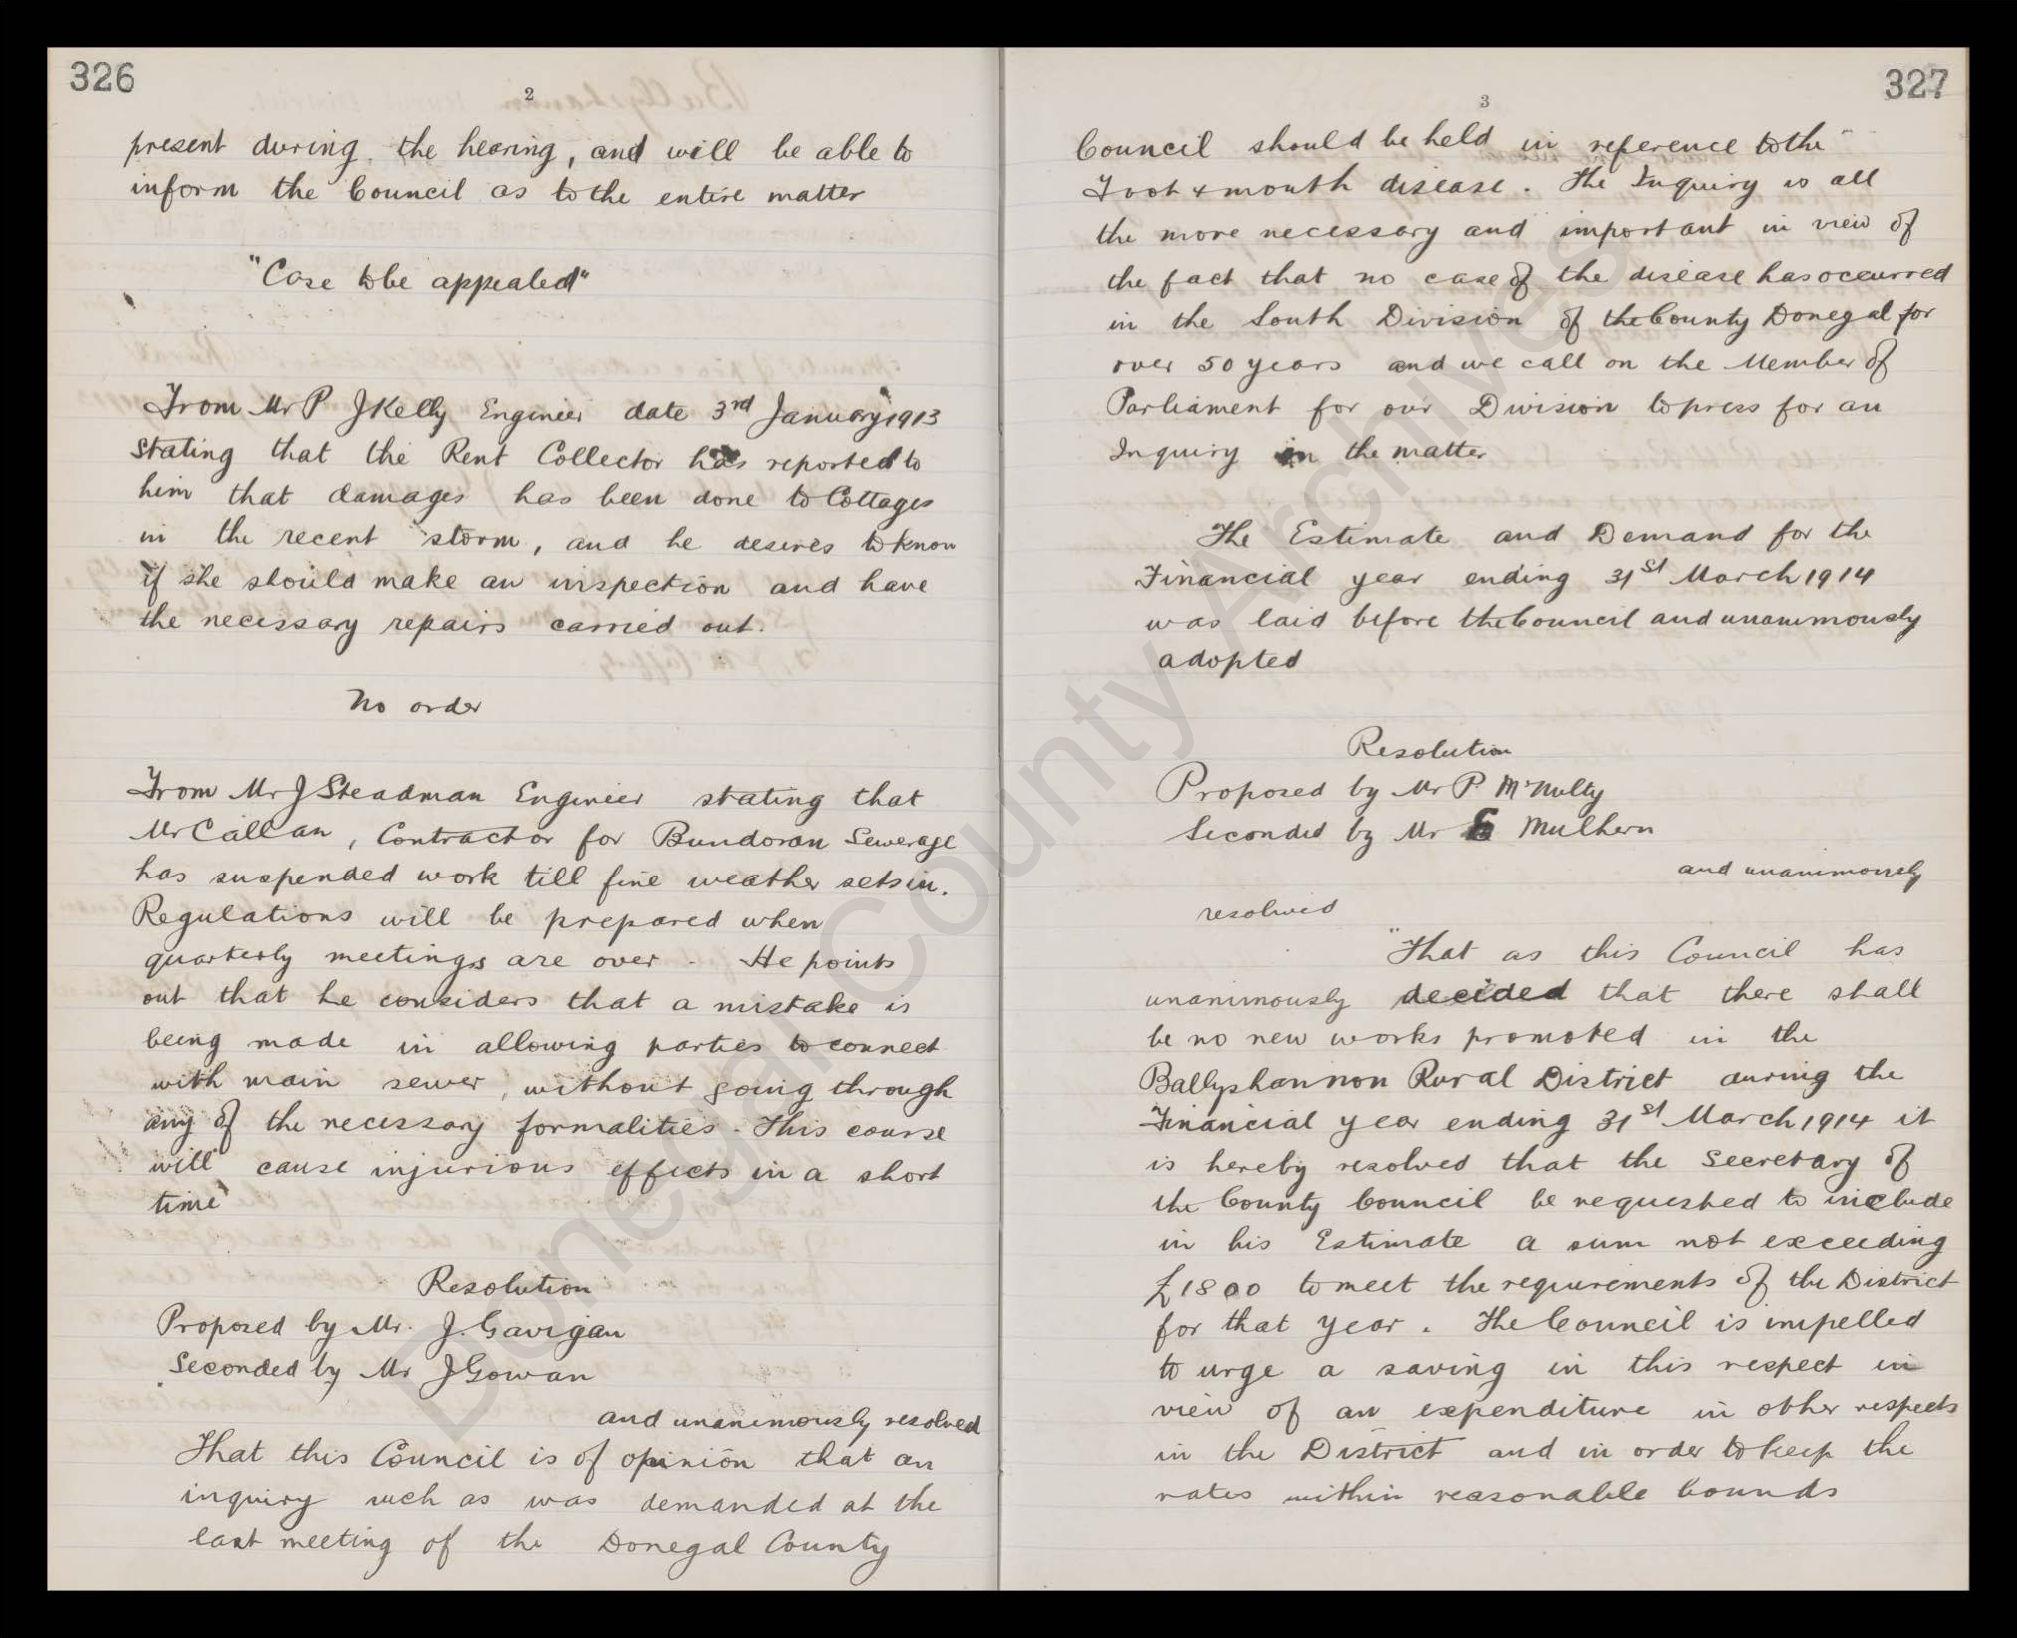 326
2
present during the hearing, and will be able to
inform the Council as to the entire matter
"Case to be appealed"
From Mr P J Kelly Engineer date 3rd January 1913
stating that the Rent Collector has reported to
him that damages has been done to Cottages
in the recent storm, and he desires to know
if she should make an inspection and have
the necessary repairs carried out.
No order
From Mr J Steadman Engineer stating that
Mr Callan, Contractor for Bundoran Sewerage
has suspended work till fine weather sets in.
Regulations will be prepared when
quarterly meetings are over. He points
out that he considers that a mistake is
being made in allowing parties to connect
with main sewer, without going through
any of the necessary formalities. This course
will cause injurious effects in a short
time
Resolution
Proposed by Mr. J. Gavigan
Seconded by Mr J Gowan
and unanimously resolved
That this Council is of opinion that an
inquiry such as was demanded at the
last meeting of the Donegal County
327
3
Council should be held in reference to the
Foot & mouth disease. The Inquiry is all
the more necessary and important in view of
the fact that no case of the disease has occurred
in the South Division of the County Donegal for
over 50 years and we call on the Member of
Parliament for our Division to press for an
Inquiry in the matter
The Estimate and Demand for the
Financial year ending 31st March 1914
was laid before the Council and unanimously
adopted
Resolution
Proposed by Mr P McNulty
Seconded by Mr Mulhern
and unanimously
resolved
"That as this Council has
unanimously decided that there shall
be no new works promoted in the
Ballyshannon Rural District during the
Financial year ending 31st March 1914 it
is hereby resolved that the Secretary of
the County Council be requested to include
in his Estimate a sum not exceeding
£1800 to meet the requirements of the District
for that year. The Council is impelled
to urge a saving in this respect in
view of an expenditure in other respects
in the District and in order to keep the
rates within reasonable bounds
Donegal County Archives